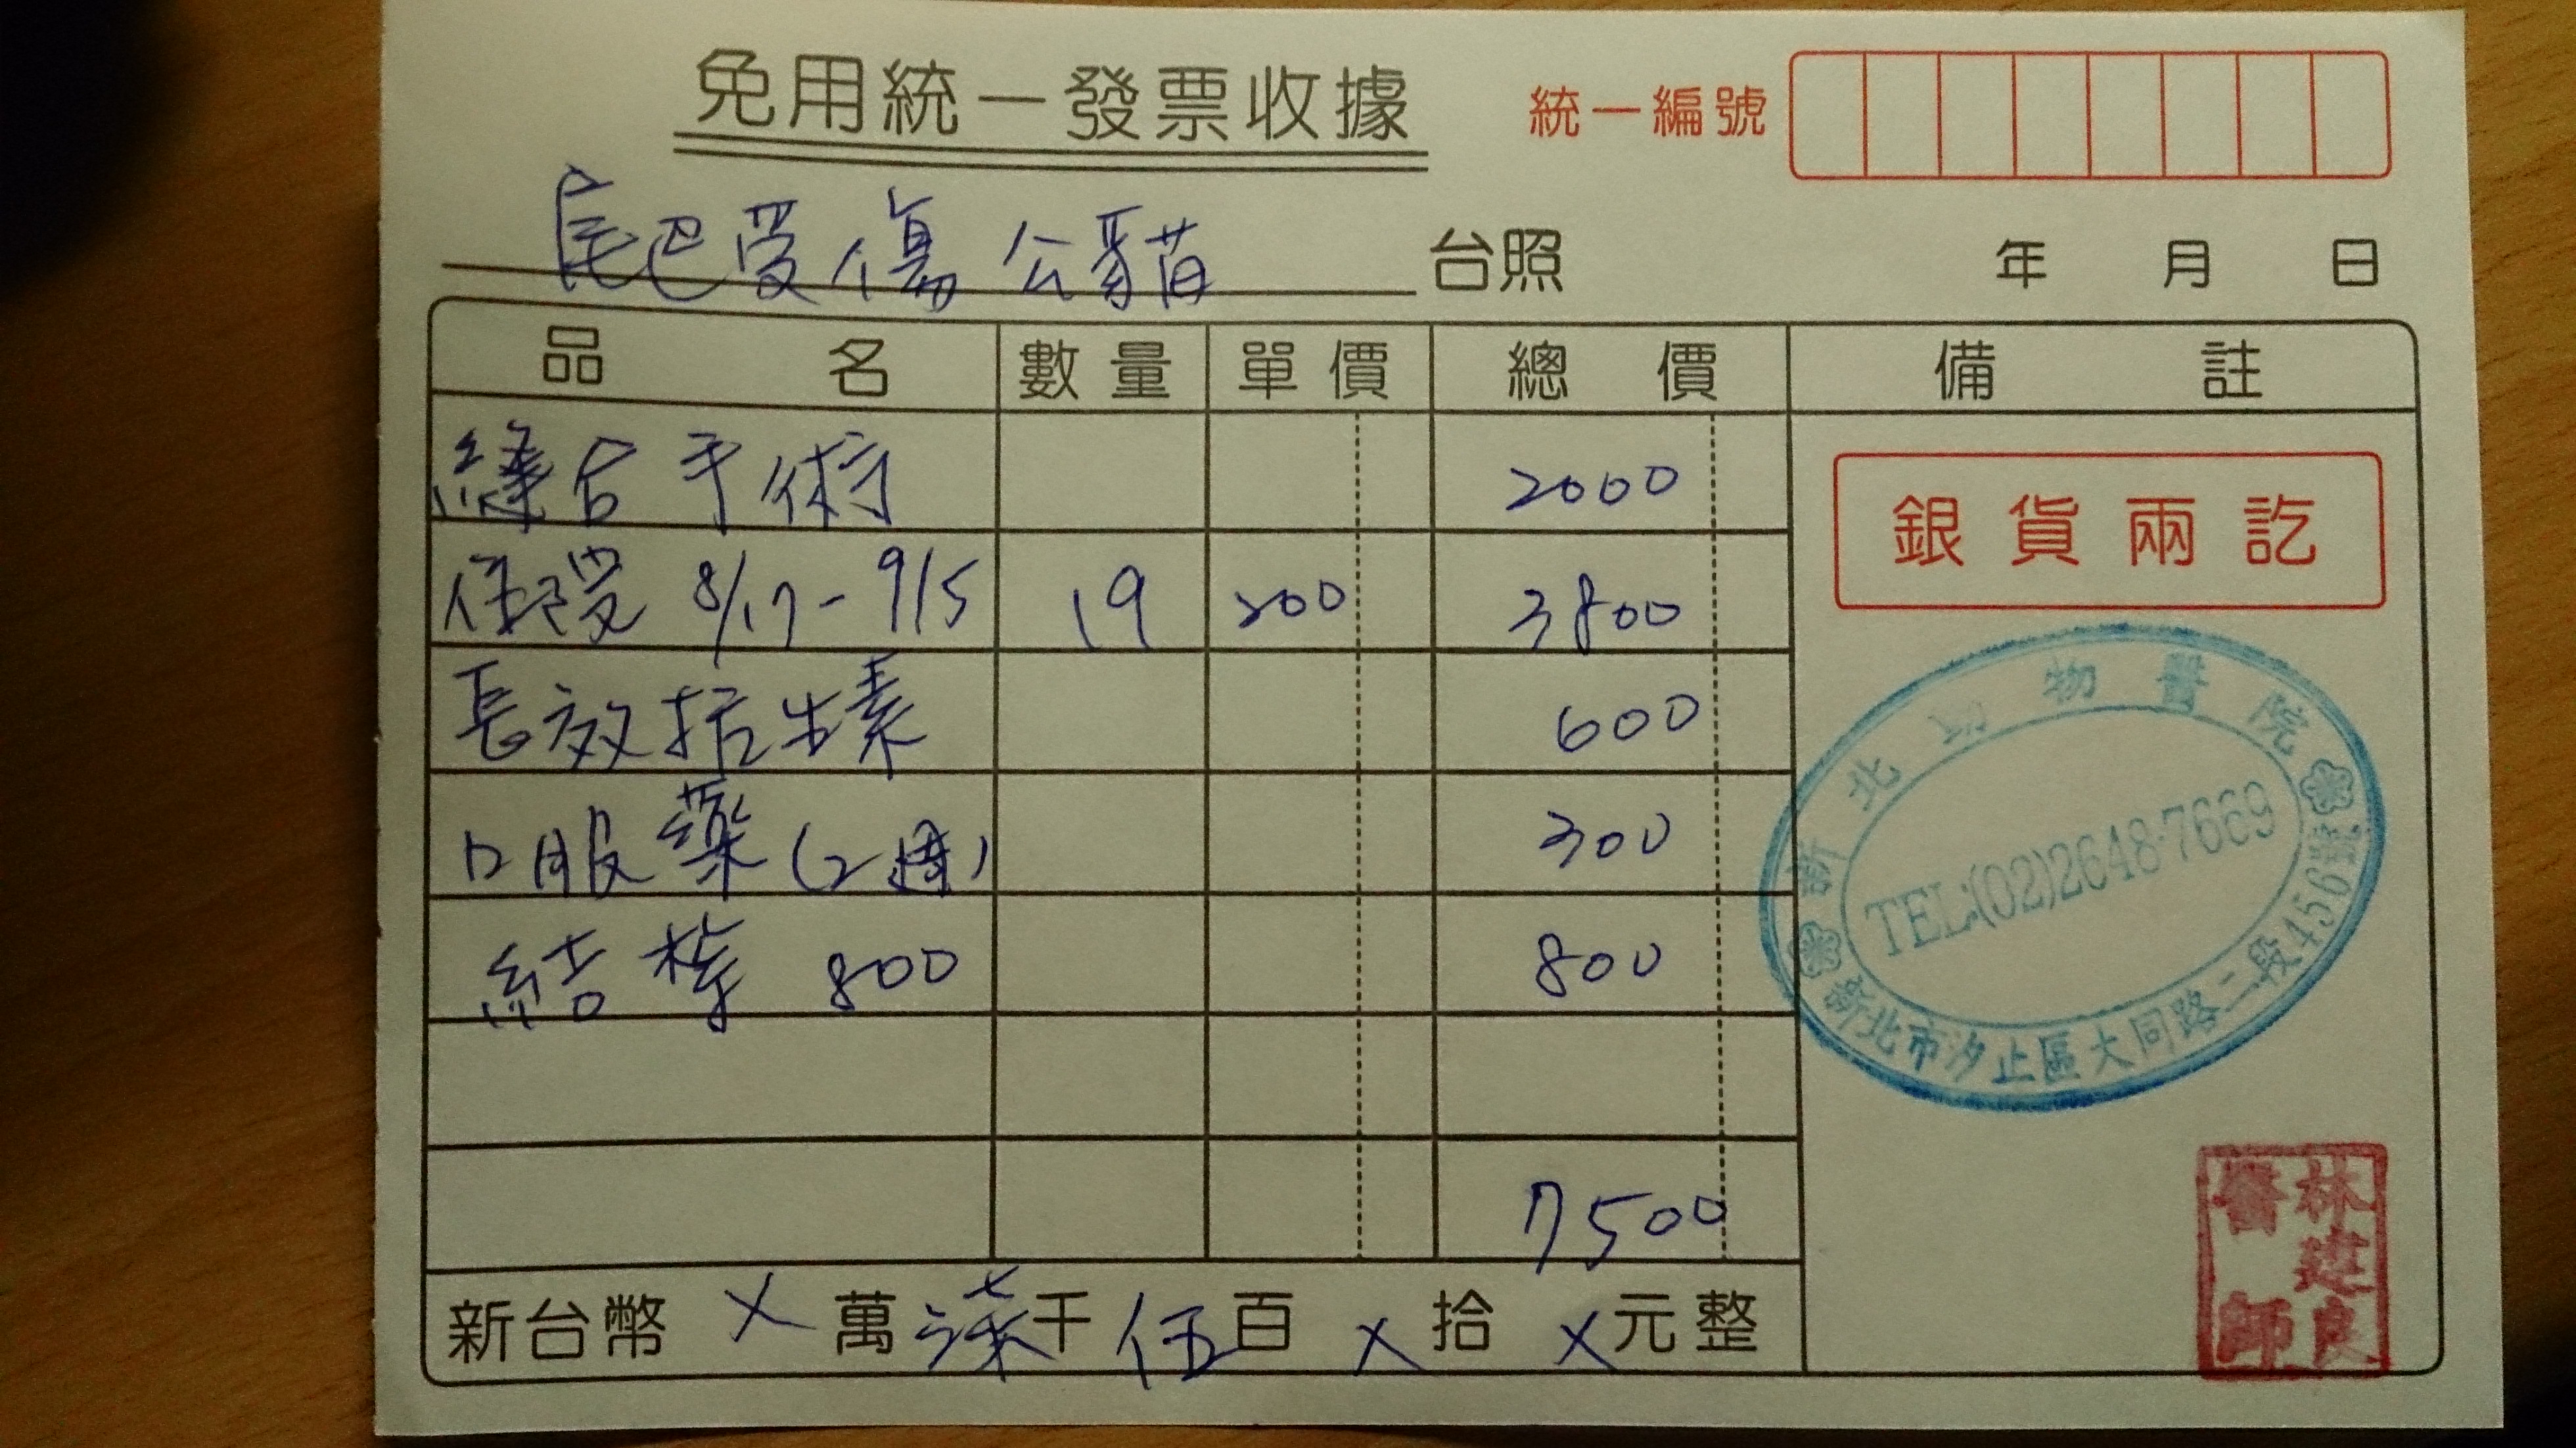 免用統一發票收據
統一編號
尾巴受傷 公貓 台照 年 月 日
品名 數量 單價 總價 備註
縫合手術 2000
住院 8/17-9/5 19 200 3800
長效抗生素 600
口服藥(2週) 300
結紮 800 800
7500
新台幣 X 萬 柒 千 伍 百 X 拾 X 元整
銀貨兩訖
新北動物醫院
TEL:(02)2648-7669
新北市汐止區大同路二段456號
林建良
醫師